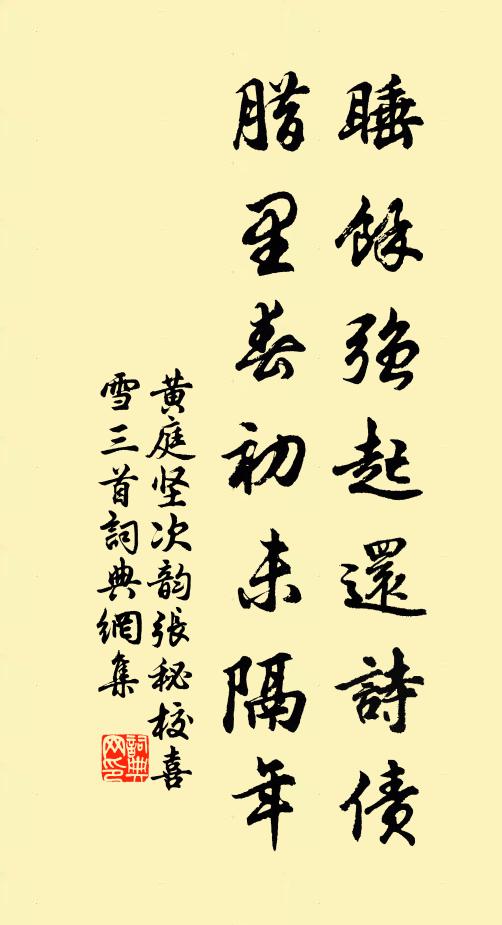 睡餘強起還詩債
腊里春初未隔年
黄庭坚次韵張秘校喜
雪三首詞典網集
詞典網印